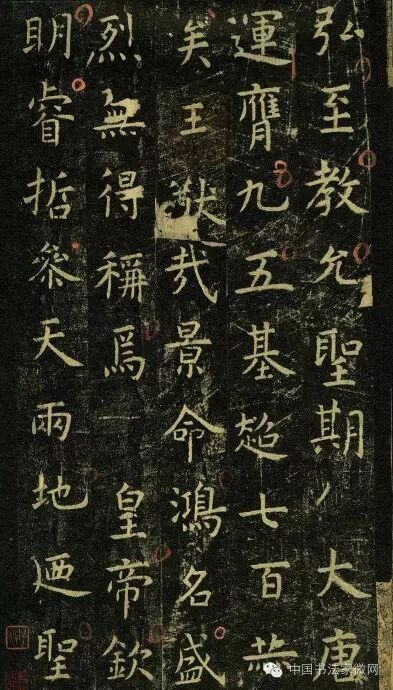 弘至教允聖期大唐
運膺九五基超七百
矣王猷哉景命鴻名盛
烈無得稱焉皇帝欽
明睿哲參天兩地迺聖
中国书法家微网